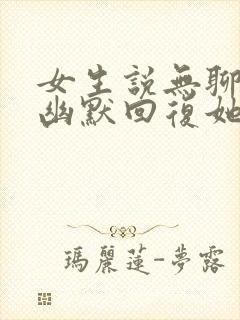 女生説無聊
幽默回復她
瑪麗蓮-夢露